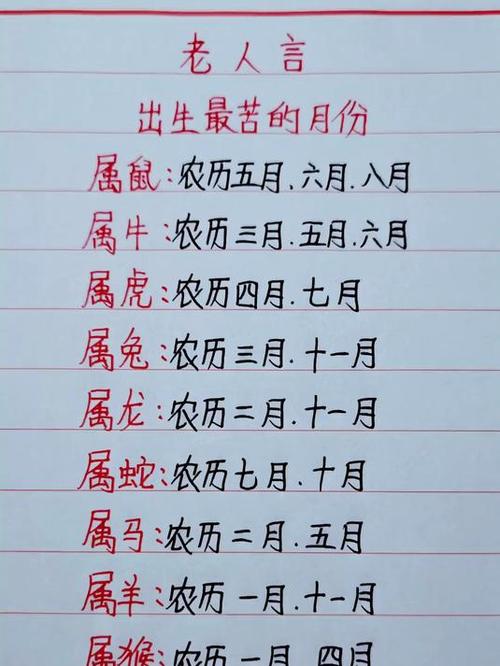 老人言
出生最苦的月份
属鼠:农历五月.六月.八月
属牛:农历三月.五月.六月
属虎:农历四月.七月
属兔:农历三月.十一月
属龙:农历二月.十一月
属蛇:农历七月.十月
属马:农历二月.五月
属羊:农历一月.十一月
属猴:农历一月.四月